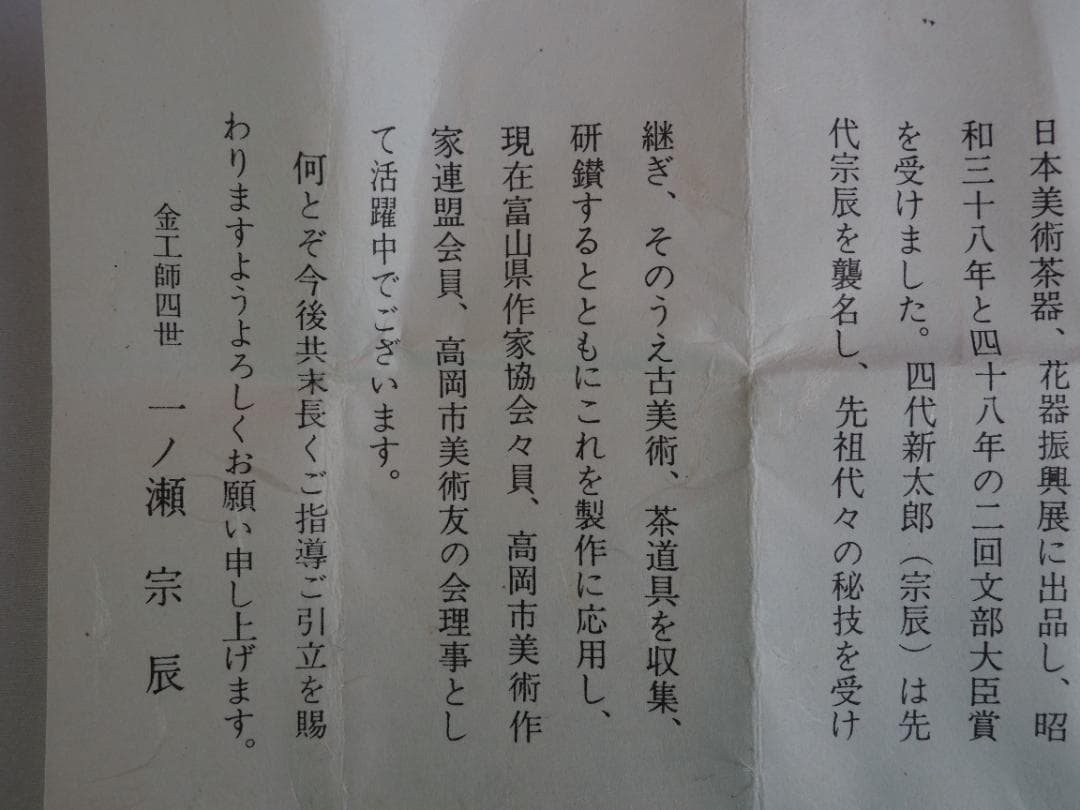 日本美術茶器、花器振興展に出品し、昭
和三十八年と四十八年の二回文部大臣賞
を受けました。四代新太郎（宗辰）は先
代宗辰を襲名し、先祖代々の秘技を受け
継ぎ、そのうえ古美術、茶道具を収集、
研鑚するとともにこれを製作に応用し、
現在富山県作家協会々員、高岡市美術作
家連盟会員、高岡市美術友の会理事とし
て活躍中でございます。
何とぞ今後共末長くご指導ご引立を賜
わりますようよろしくお願い申し上げます。
金工師四世 一ノ瀬宗辰